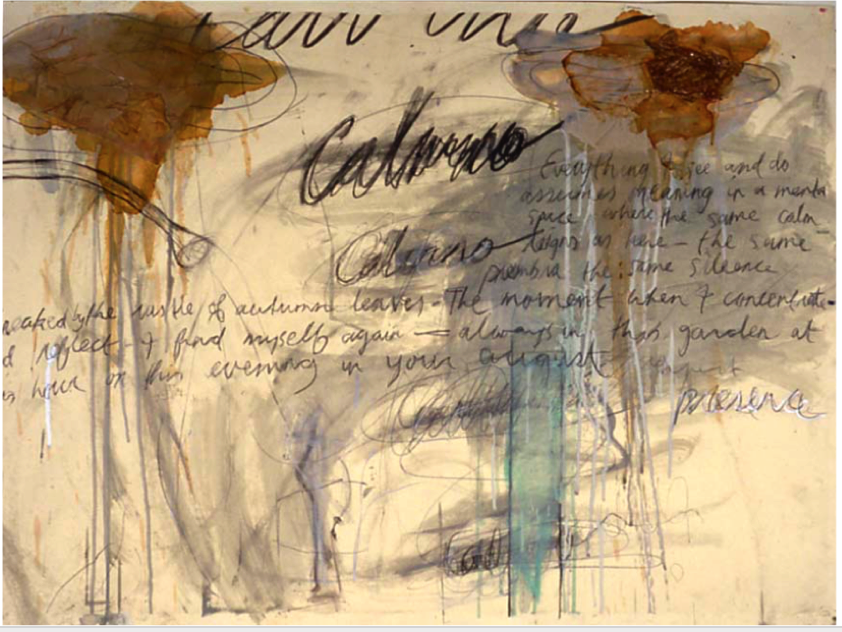 Calvino
Everything I see and do
assumes meaning in a menta
space where the same calm
Calvino
reigns as here – the same
penumbra the same silence
reaked by the rustle of autumn leaves - The moment when I concentrate-
d reflect - I find myself again — always in this garden at
is hour of this evening in your august
presence